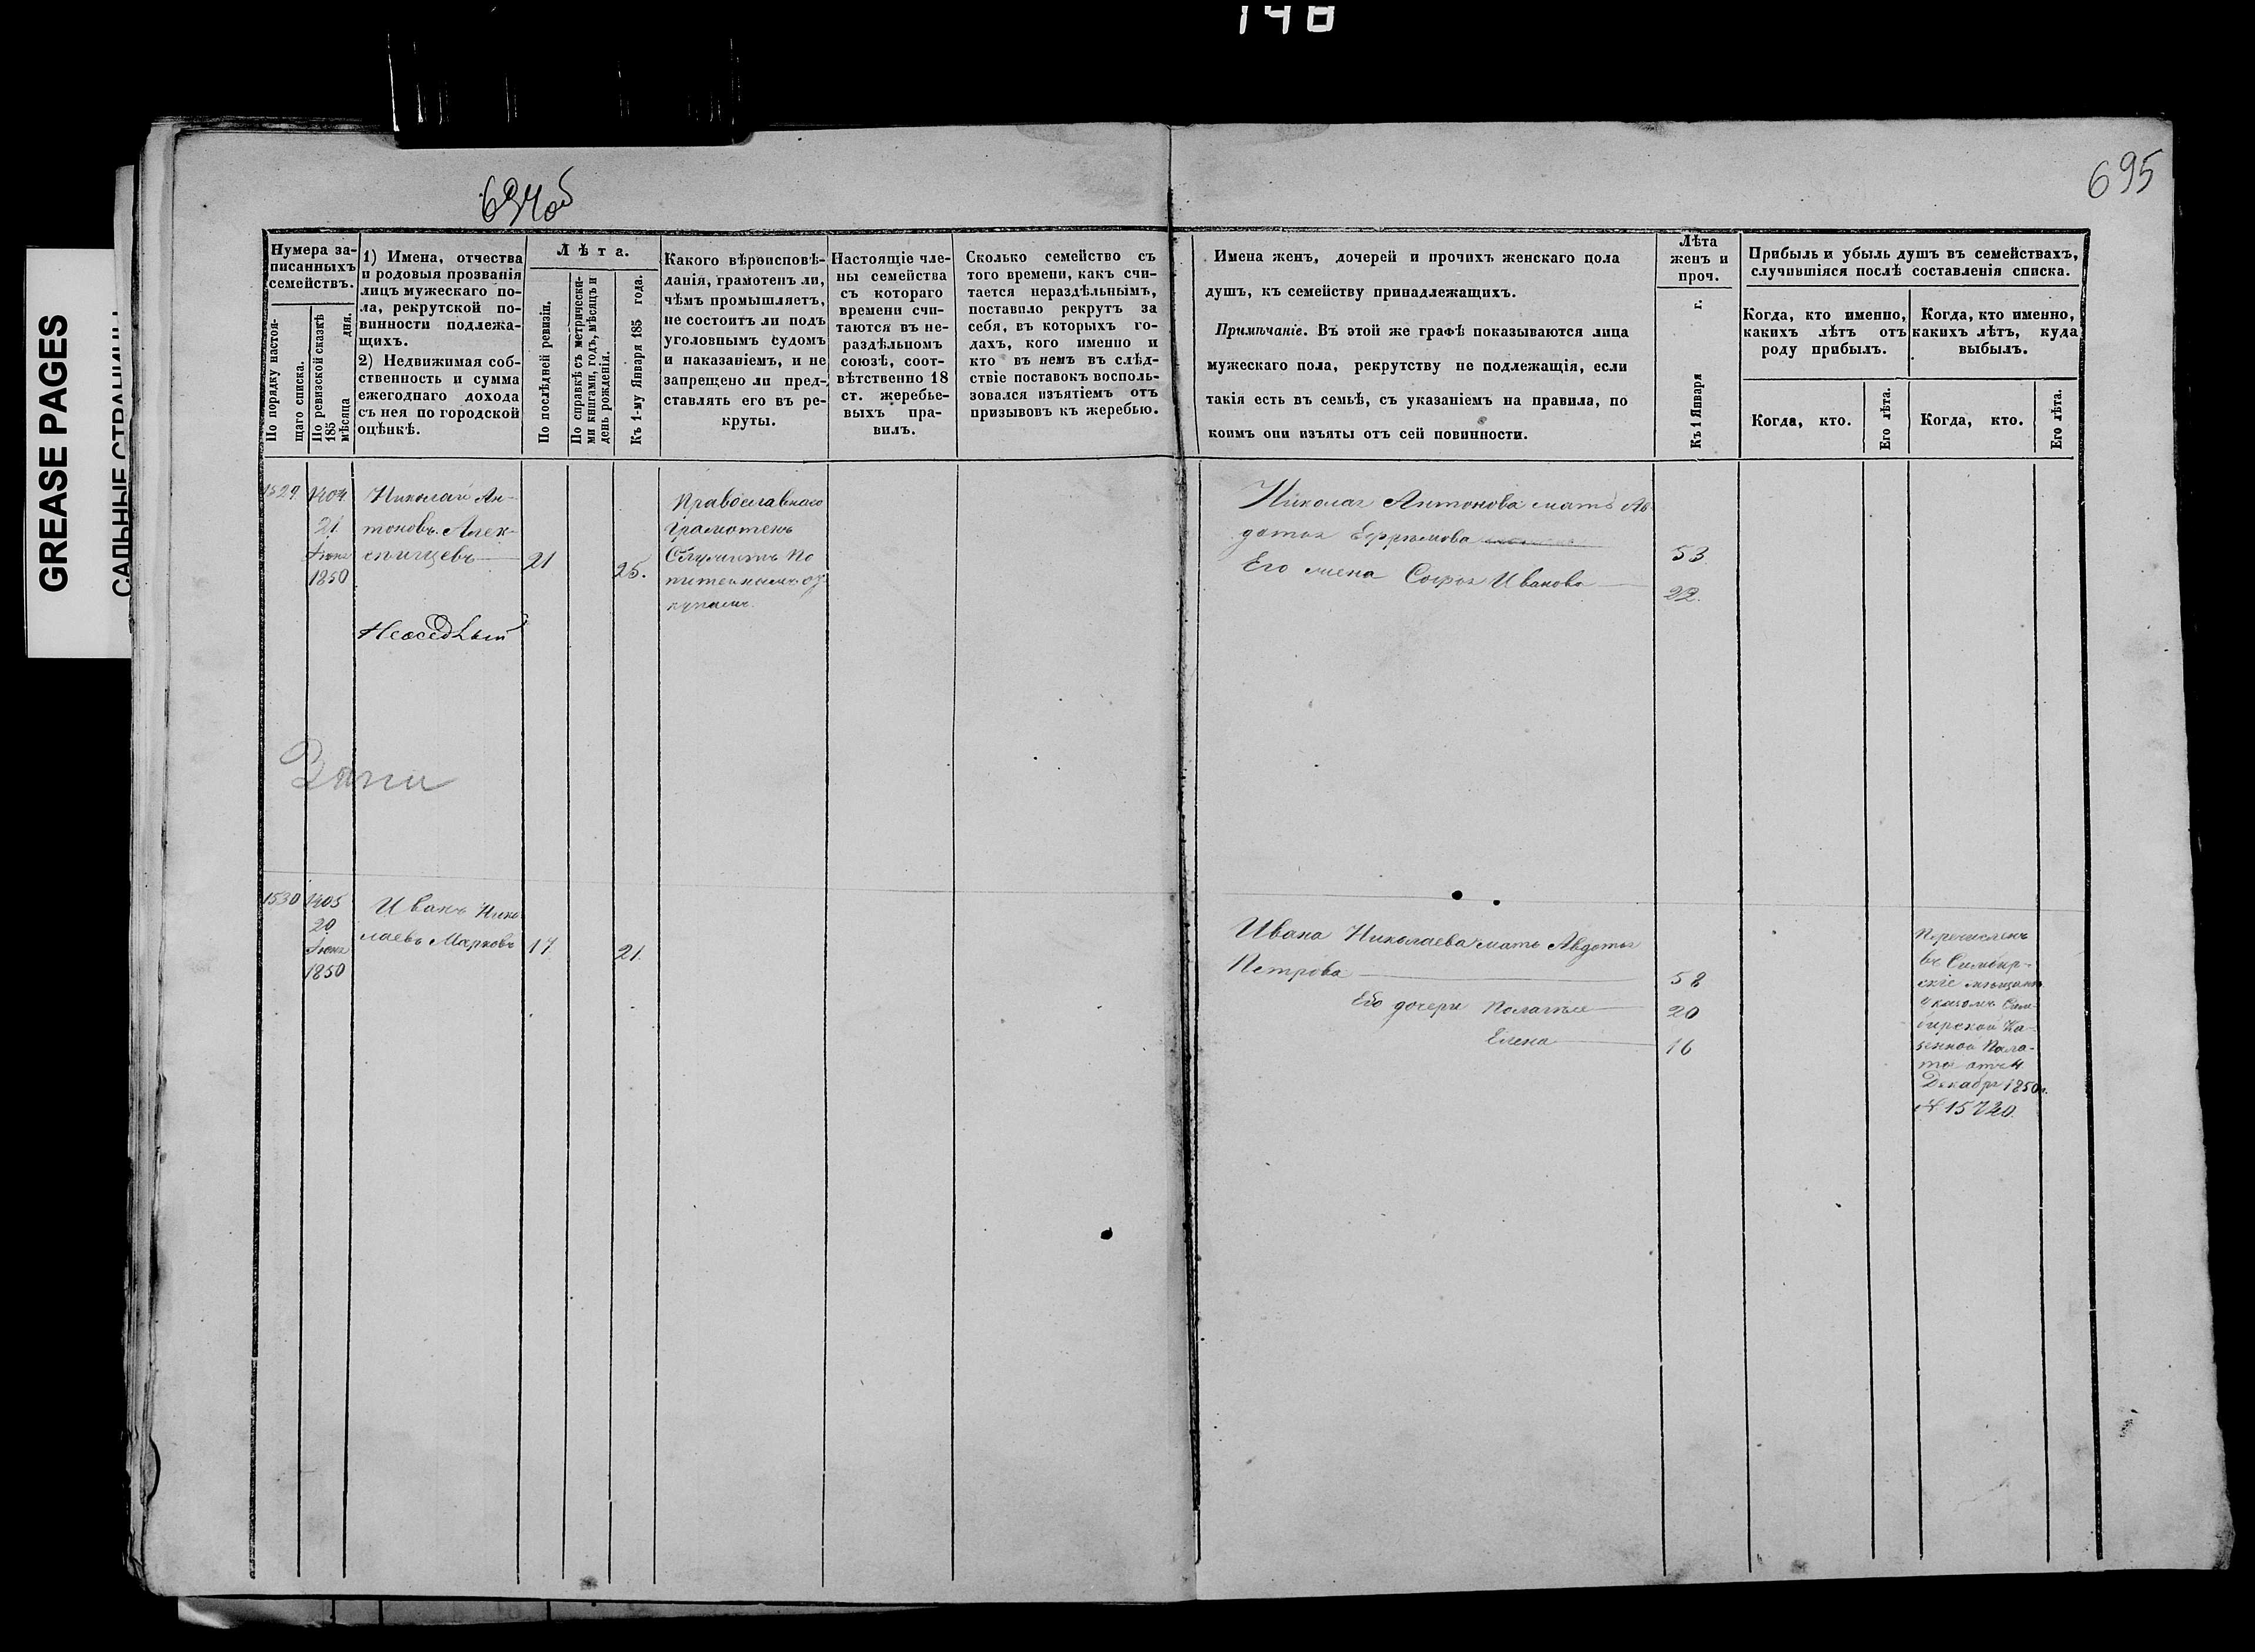 148
GREASE PAGES
САЛЬНЫЕ СТРАНИЦЫ
694об
695
Нумера за-
писанныхъ
семействъ.
По порядку настоя-
щаго списка.
По ревизской сказкѣ
185 дня.
мѣсяца
1) Имена, отчества
и родовыя прозванія
лицъ мужескаго по-
ла, рекрутской по-
винности подлежа-
щихъ.
2) Недвижимая соб-
ственность и сумма
ежегоднаго дохода
съ нея по городской
оцѣнкѣ.
Лѣта.
По послѣдней ревизіи.
По справкѣ съ метрически-
ми книгами, годъ, мѣсяцъ и
день рожденія.
Къ 1-му Января 185 года.
Какого вѣроисповѣ-
данія, грамотенъ ли,
чѣмъ промышляетъ,
не состоитъ ли подъ
уголовнымъ судомъ
и наказаніемъ, и не
запрещено ли пред-
ставлять его въ ре-
круты.
Настоящіе чле-
ны семейства
съ котораго
времени счи-
таются въ не-
раздѣльномъ
союзѣ, соот-
вѣтственно 18
ст. жеребье-
выхъ пра-
вилъ.
Сколько семейство съ
того времени, какъ счи-
тается нераздѣльнымъ,
поставило рекрутъ за
себя, въ которыхъ го-
дахъ, кого именно и
кто въ немъ въ слѣд-
ствіе поставокъ восполь-
зовался изъятіемъ отъ
призывовъ къ жеребью.
Имена женъ, дочерей и прочихъ женскаго пола
душъ, къ семейству принадлежащихъ.
Примѣчаніе. Въ этой же графѣ показываются лица
мужескаго пола, рекрутству не подлежащія, если
такія есть въ семьѣ, съ указаніемъ на правила, по
коимъ они изъяты отъ сей повинности.
Лѣта
женъ и
проч.
Къ 1 Января г.
Прибыль и убыль душъ въ семействахъ,
случившіяся послѣ составленія списка.
Когда, кто именно,
какихъ лѣтъ отъ
роду прибылъ.
Когда, кто именно,
какихъ лѣтъ, куда
выбылъ.
Когда, кто.
Его лѣта.
Когда, кто.
Его лѣта.
1529. 1404.
21
Іюня
1850
Николай Ан-
тоновъ Алек-
сеищевъ
21
25.
Православнаго
Грамотенъ
Служитъ по
питейнымъ от
купамъ.
Неоседлый
Николая Антонова мать Ав
дотья Ефремова
53.
Его жена Софья Иванова
22.
1530 1405
20
Іюня
1850
Иванъ Нико
лаевъ Марковъ
17.
21.
Ивана Николаева мать Авдотья
Петрова
58
Ево дочери Пелагея
20
Елена
16
Перечисленъ
въ Симбир-
скіе мѣщане
Указомъ Сим-
бирской Ка-
зенной Пала-
ты отъ 4
Декабря 1850 г.
№ 15720.